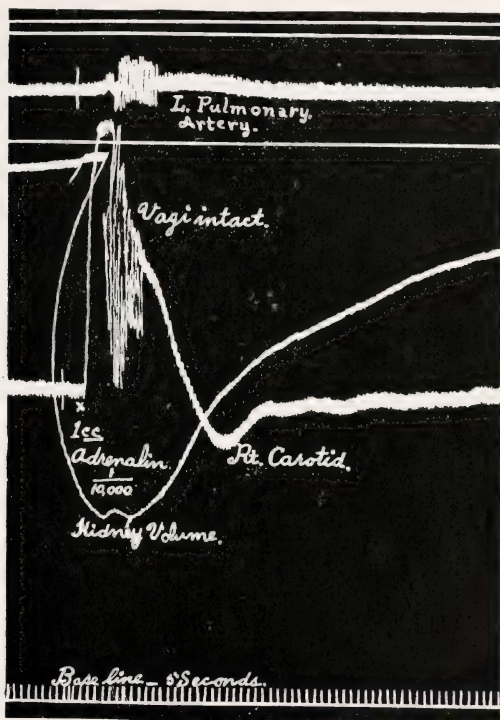 L. Pulmonary.
Artery.
Vagi intact.
x
1cc
Adrenalin.
1
10,000
Rt. Carotid.
Kidney Volume.
Base line _ 5 Seconds.